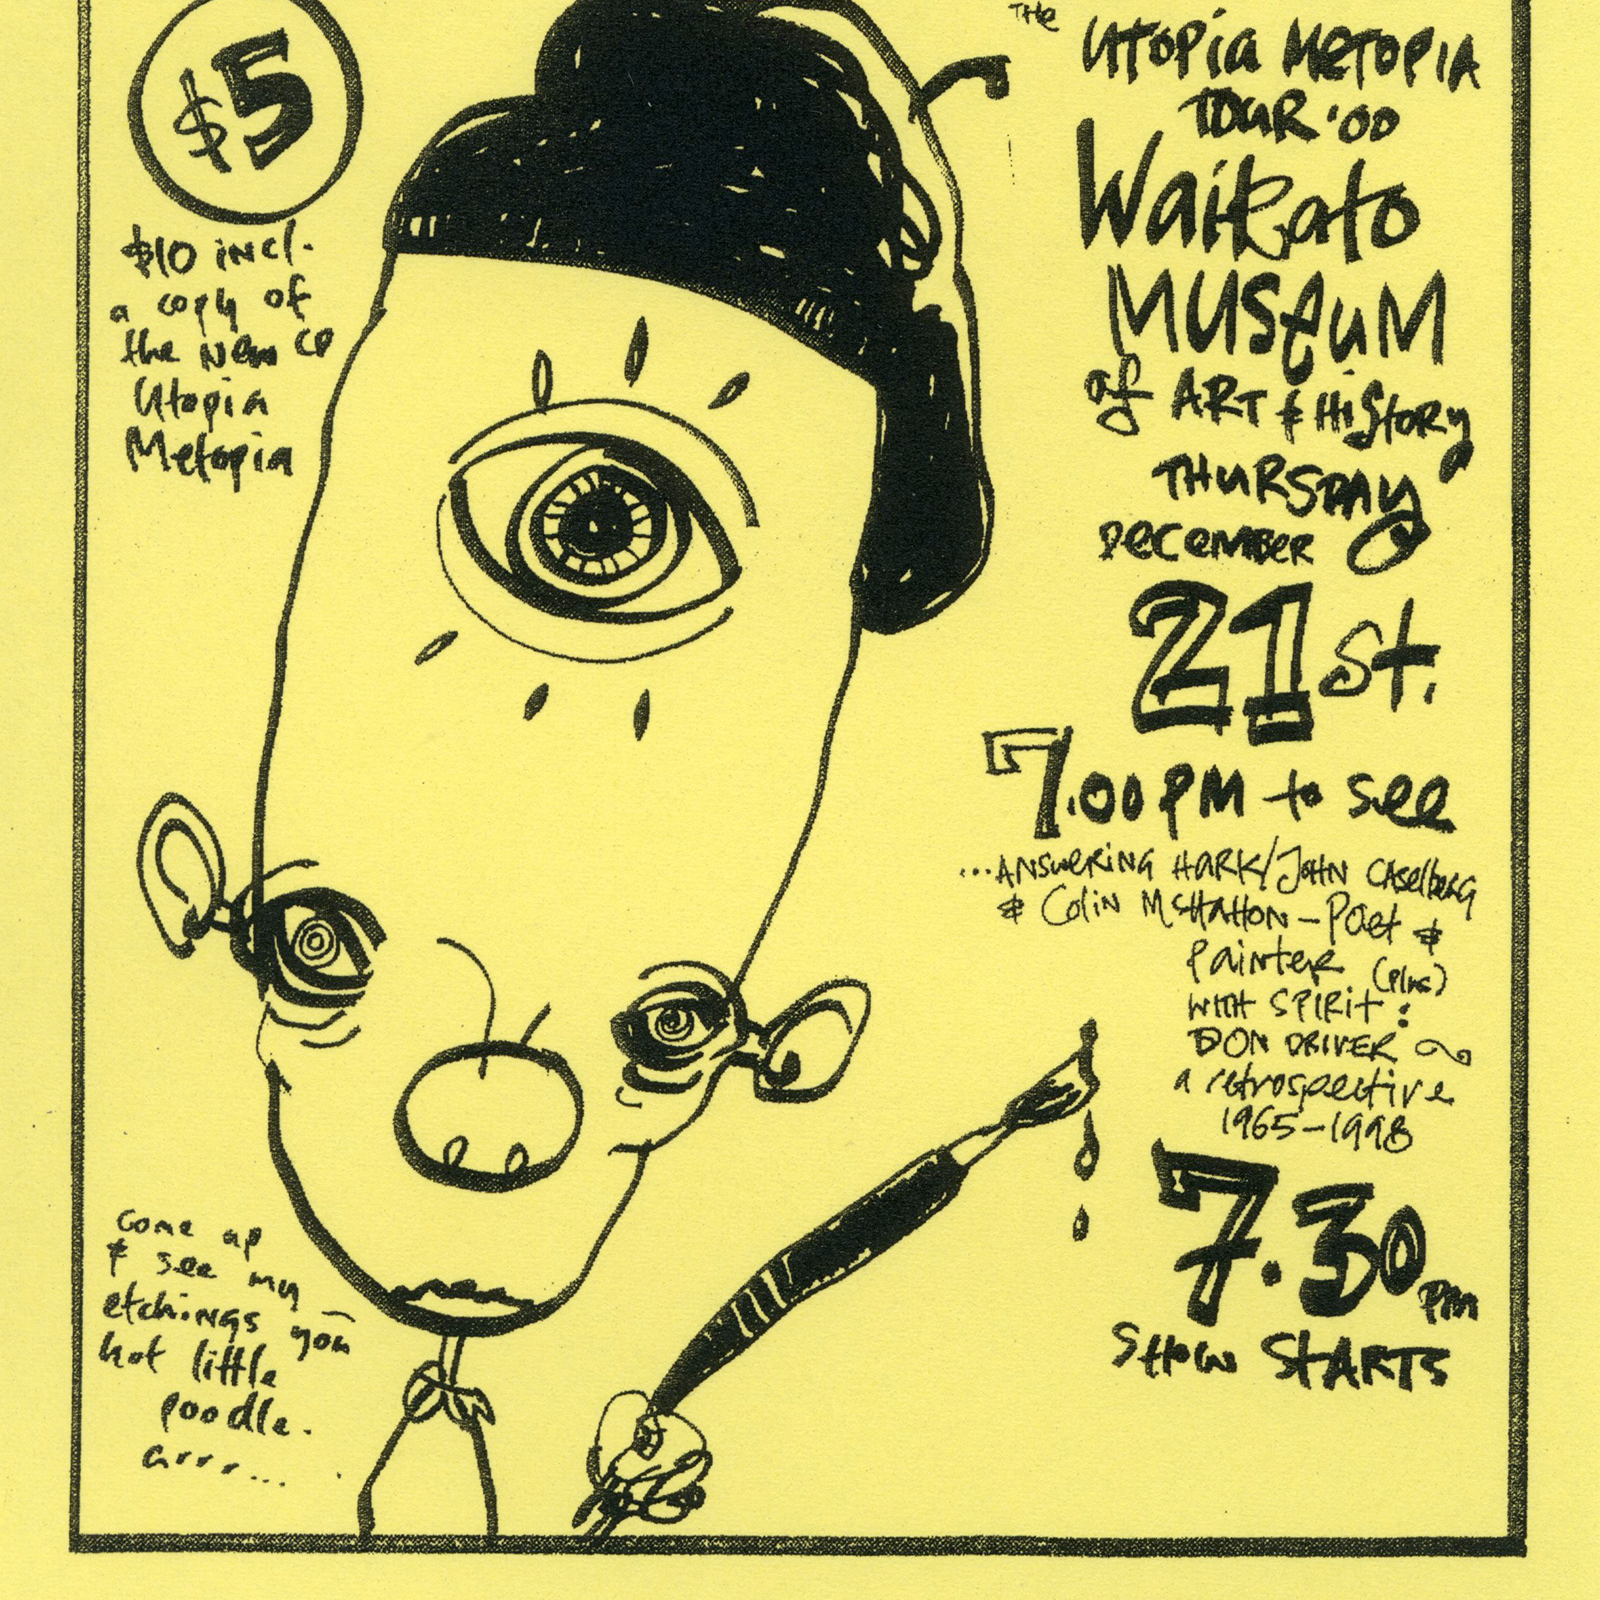 $5
$10 incl.
a copy of
the new CD
Utopia
Metopia
THE UTOPIA METOPIA
TOUR '00
Waikato
MUSEUM
of ART & HiStORY
THURSDAY
DECEMBER
21st.
7.00 PM to see
...ANSWERING HARK/JOHN CASELBERG
& Colin McHAHON - POet &
Painter (plus)
WITH SPIRIT:
DON DRIVER
a retrospective
1965-1998
7.30 PM
SHOW STARTS
come up
& see my
etchings you
hot little
poodle.
Grrr...